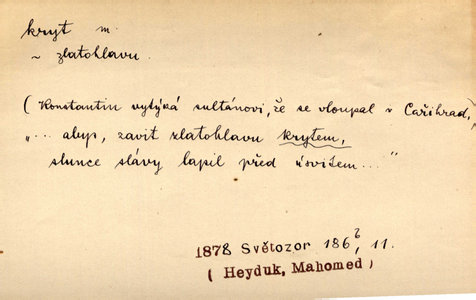 kryt m.
~ zlatohlavu
(Konstantin vytýká sultánovi, že se vloupal v Cařihrad,)
„... abys, zavit zlatohlavu krytem,
slunce slávy lapil před úsvitem..."
1878 Světozor 186², 11.
( Heyduk, Mahomed )